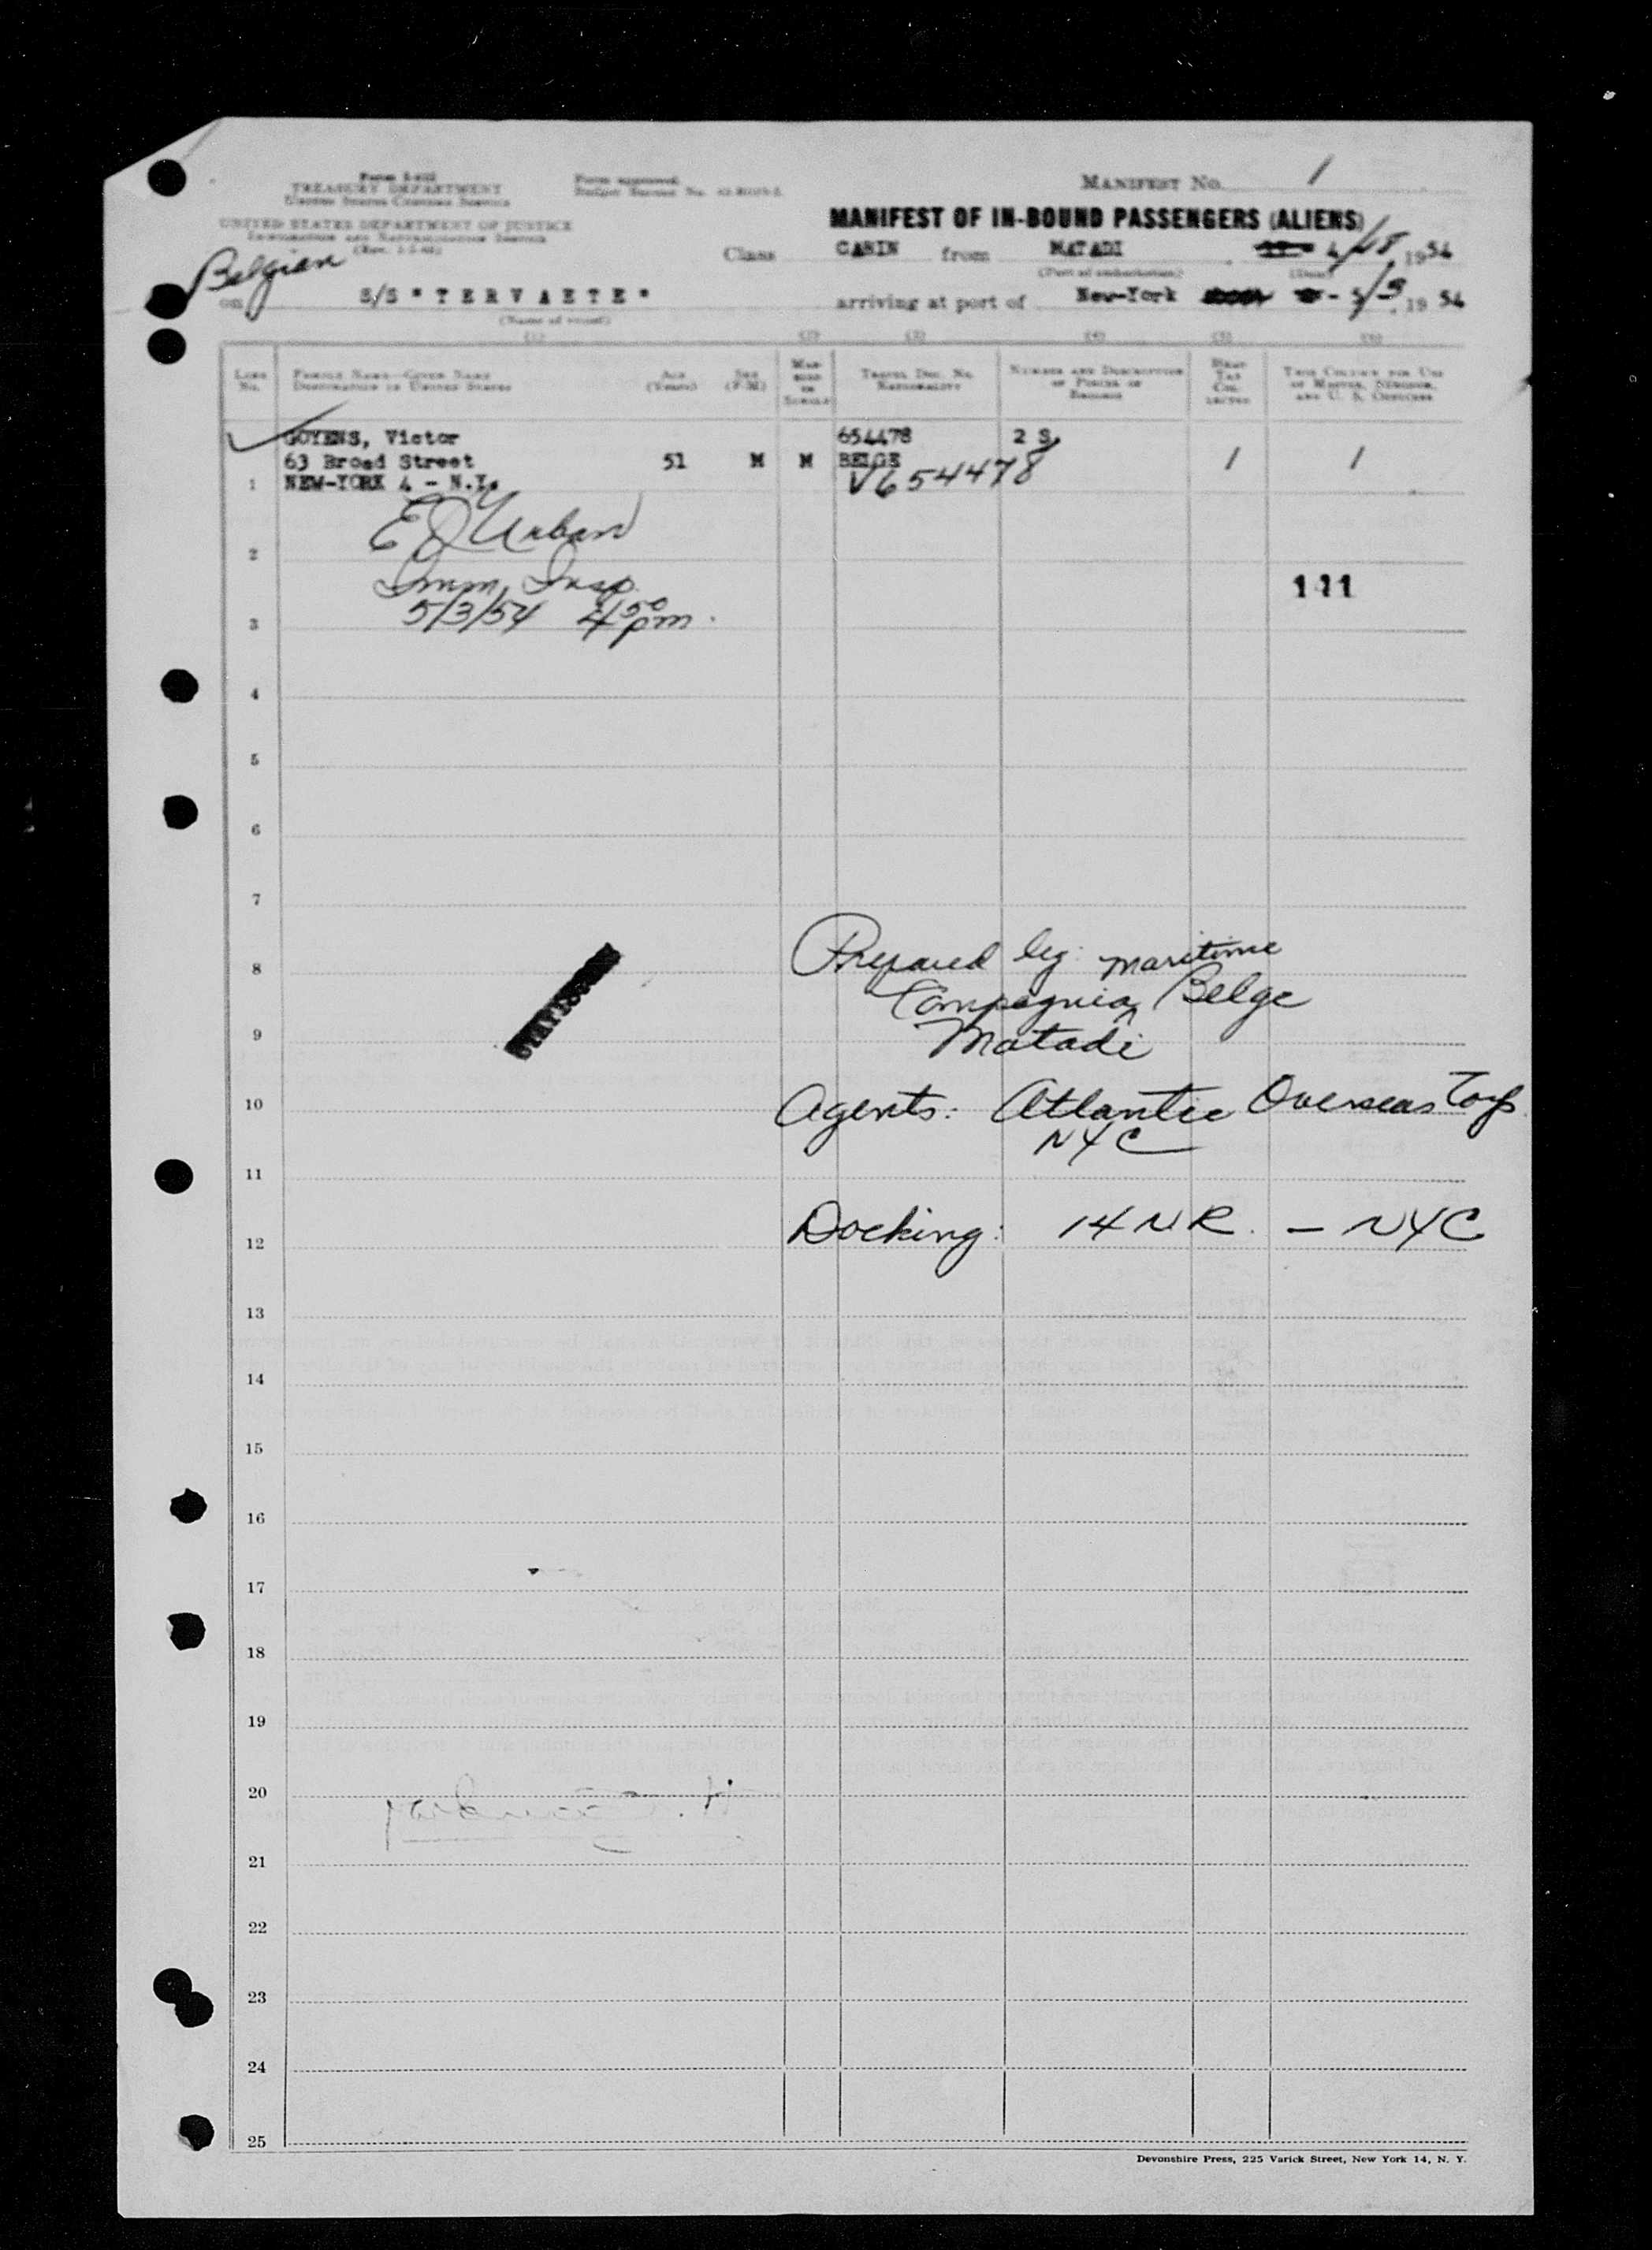 Form I-415
TREASURY DEPARTMENT
United States Customs Service
UNITED STATES DEPARTMENT OF JUSTICE
Immigration and Naturalization Service
Form approved.
Budget Bureau No.
Manifest No. 1
MANIFEST OF IN-BOUND PASSENGERS (ALIENS)
Belgian
Class CABIN from MATADI 4/18, 1954
(Port of embarkation) (Date)
on S/S "TERVAETE" arriving at port of New-York 5/3, 1954
(Name of vessel)
(1) (2) (3) (4) (5) (6)
Line No.
Family Name—Given Name
Destination in United States
Age (Years)
Sex (F-M)
Married or Single
Travel Doc. No.
Nationality
Number and Description of Pieces of Baggage
Head Tax Collected
This Column for Use of Master, Surgeon, and U. S. Officers
GOYENS, Victor 654478 2 S.
63 Broad Street 51 M M BELGE 1 1
1 NEW-YORK 4 - N.Y. V654478
E J Urban
2
Imm, Insp. 111
5/3/54 4 50 pm.
3
4
5
6
7
Prepared by: maritime
8
Compagnia Belge
9 Matadi
10 Agents: Atlantic Overseas Corp.
NYC
11
12 Docking: 14 N R. - NYC
13
14
15
16
17
18
19
20
21
22
23
24
25
Devonshire Press, 225 Varick Street, New York 14, N. Y.